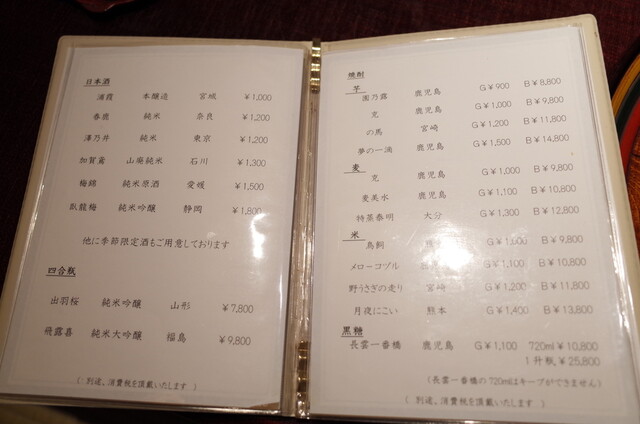 日本酒
浦霞 本醸造 宮城 ¥1,000
春鹿 純米 奈良 ¥1,200
澤乃井 純米 東京 ¥1,200
加賀鳶 山廃純米 石川 ¥1,300
梅錦 純米原酒 愛媛 ¥1,500
臥龍梅 純米吟醸 静岡 ¥1,800
他に季節限定酒もご用意しております
四合瓶
出羽桜 純米吟醸 山形 ¥7,800
飛露喜 純米大吟醸 福島 ¥9,800
(別途、消費税を頂戴いたします)
焼酎
芋
園乃露 鹿児島 G¥900 B¥8,800
克 鹿児島 G¥1,000 B¥9,800
の馬 宮崎 G¥1,200 B¥11,800
夢の一滴 鹿児島 G¥1,500 B¥14,800
麦
克 鹿児島 G¥1,000 B¥9,800
麦美水 鹿児島 G¥1,100 B¥10,800
特蒸泰明 大分 G¥1,300 B¥12,800
米
鳥飼 G¥1,000 B¥9,800
メローコヅル G¥1,100 B¥10,800
野うさぎの走り 宮崎 G¥1,200 B¥11,800
月夜にこい 熊本 G¥1,400 B¥13,800
黒糖
長雲一番橋 鹿児島 G¥1,100 720ml¥10,800
1升瓶¥25,800
(長雲一番橋の720mlはキープができません)
(別途、消費税を頂戴いたします)